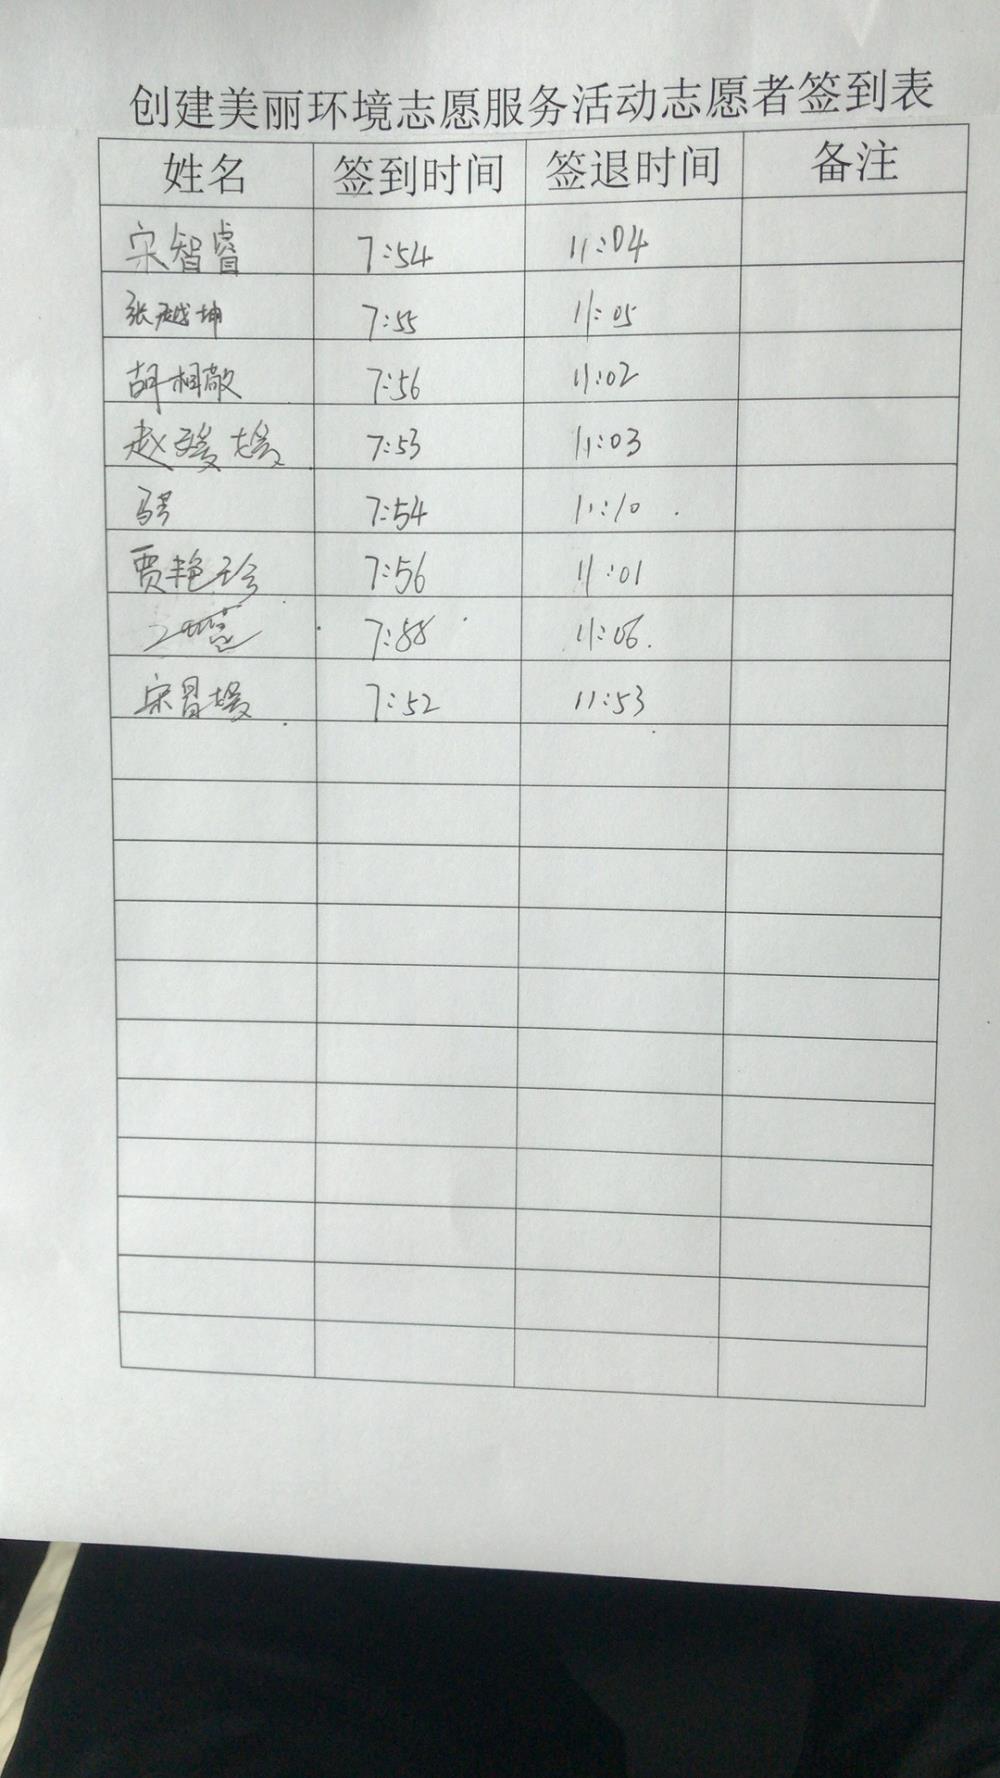 创建美丽环境志愿服务活动志愿者签到表
姓名 签到时间 签退时间 备注
宋智睿 7:54 11:04
张越坤 7:55 11:05
胡相敬 7:56 11:02
赵媛媛 7:53 11:03
7:54 11:10
贾艳珍 7:56 11:01
7:58 11:06
7:52 11:53